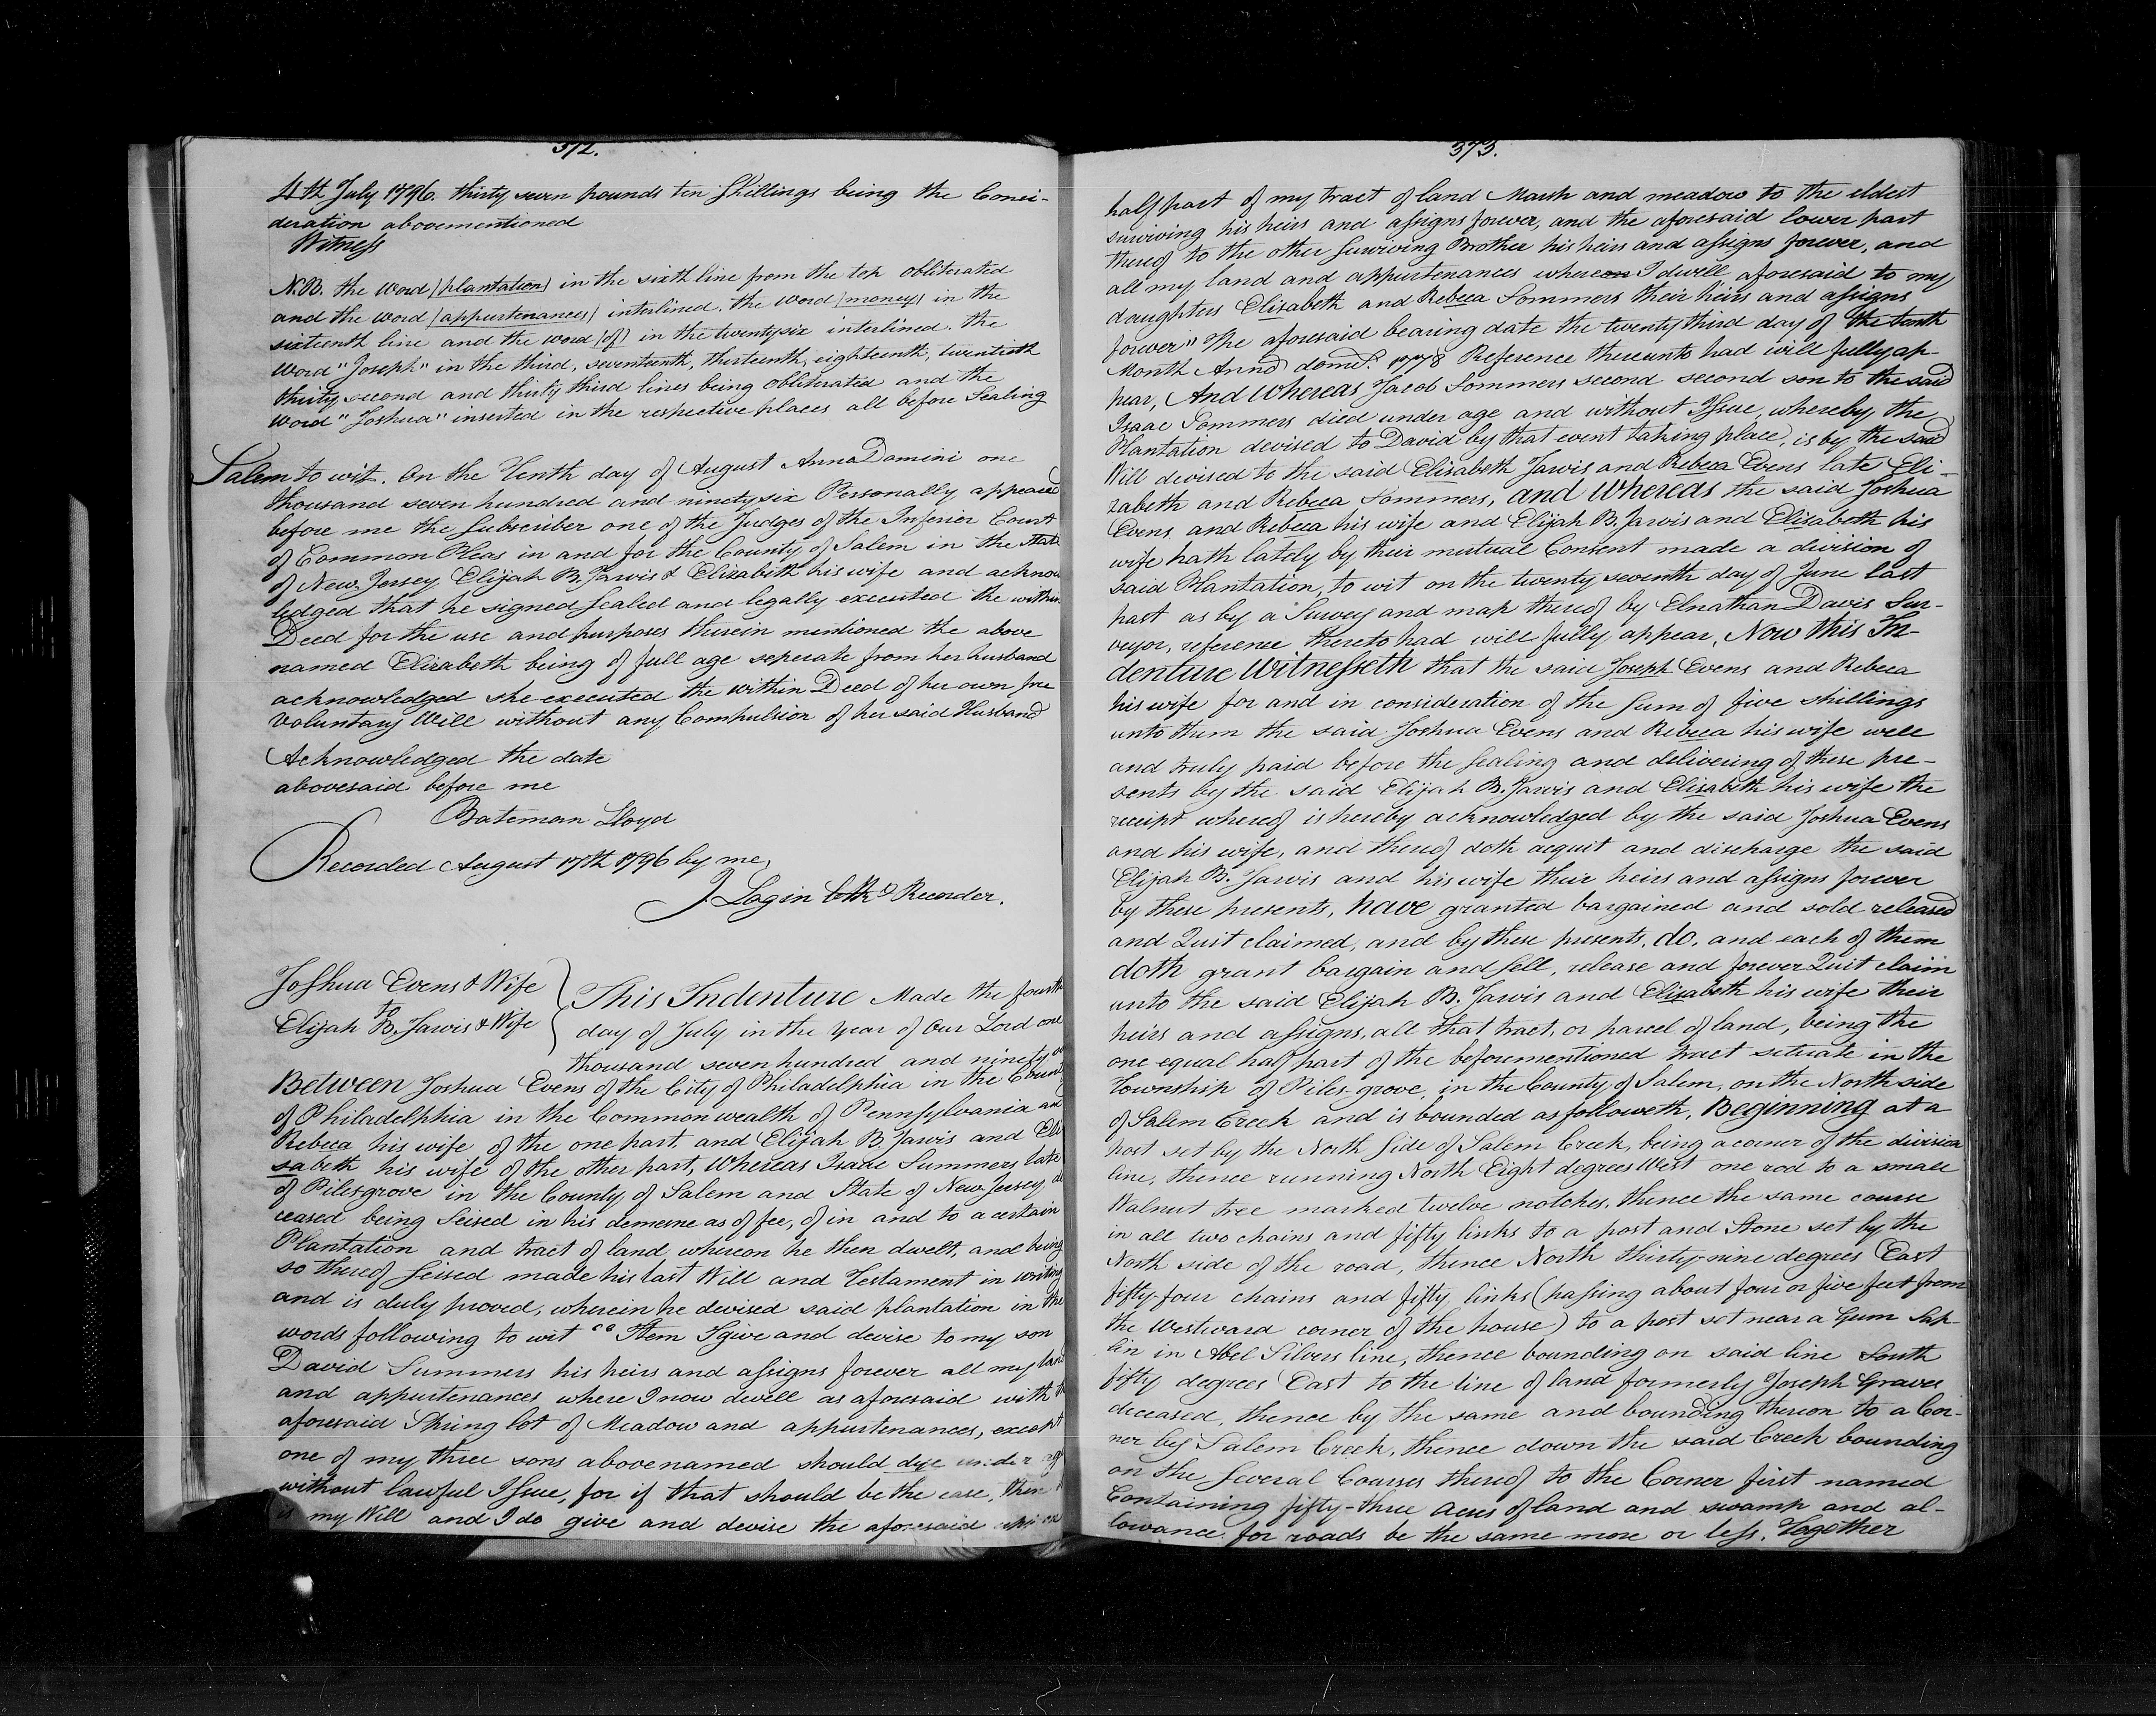 372.
4th July 1796. thirty seven pounds ten Shillings being the Consi-
deration abovementioned
Witness
N.B. the word (plantation) in the sixth line from the top obliterated
and the word (appurtenances) interlined. the word (money) in the
sixteenth line and the word (of) in the twentysix interlined. the
word "Joseph" in the third, seventeenth, thirteenth, eighteenth, twentieth
thirty second and thirty third lines being obliterated and the
word "Joshua" inserted in the respective places all before Sealing
Salem to wit. On the Tenth day of August Anna Domini one
thousand seven hundred and ninety six Personally appeared
before me the Subscriber one of the Judges of the Inferior Court
of Common Pleas in and for the County of Salem in the State
of New Jersey Elijah B. Jarvis & Elizabeth his wife and acknow
ledged that he signed sealed and legally executed the within
Deed for the use and purposes therein mentioned the above
named Elizabeth being of full age seperate from her husband
acknowledged she executed the within Deed of her own free
voluntary Will without any Compulsion of her said Husband
Acknowledged the date
abovesaid before me
Bateman Lloyd
Recorded August 17th 1796 by me,
J. Lagin Recorder.
Joshua Evens & Wife
to
Elijah B. Jarvis & Wife
This Indenture Made the fourth
day of July in the Year of Our Lord one
thousand seven hundred and ninety
Between Joshua Evens of the City of Philadelphia in the County
of Philadelphia in the Commonwealth of Pennsylvania and
Rebeca his wife of the one part and Elijah B Jarvis and Eli
sabeth his wife of the other part, Whereas Isaac Summers late
of Pilesgrove in the County of Salem and State of New Jersey de
ceased being Seised in his demesne as of fee, of in and to a certain
Plantation and tract of land whereon he then dwelt, and being
so thereof seised made his last Will and Testament in writing
and is duly proved, wherein he devised said plantation in the
words following to wit "Item I give and devise to my son
David Summers his heirs and assigns forever all my land
and appurtenances where I now dwell as aforesaid with
aforesaid Spring lot of Meadow and appurtenances, except
one of my three sons abovenamed should dye under age
without lawful Issue, for if that should be the case, then
is my Will and I do give and devise the aforesaid
373.
half part of my tract of land Marsh and meadow to the eldest
surviving his heirs and assigns forever, and the aforesaid lower part
thereof to the other surviving Brother his heirs and assigns forever, and
all my land and appurtenances whereon I dwell aforesaid to my
daughters Elisabeth and Rebeca Sommers their heirs and assigns
forever" The aforesaid bearing date the twenty third day of the tenth
Month Anno domd. 1778 Reference thereunto had will fully ap-
pear, And Whereas Jacob Sommers second second son to the said
Isaac Sommers died under age and without Issue, whereby the
Plantation devised to David by that event taking place, is by the said
Will devised to the said Elisabeth Jarvis and Rebeca Evens late Eli-
zabeth and Rebeca Sommers, and Whereas the said Joshua
Evens and Rebeca his wife and Elijah B. Jarvis and Elisabeth his
wife hath lately by their mutual Consent made a division of
said Plantation, to wit on the twenty seventh day of June last
past as by a Survey and map thereof by Elnathan Davis Sur-
veyor, reference thereto had will fully appear, Now this In-
denture Witnesseth that the said Joseph Evens and Rebeca
his wife for and in consideration of the Sum of five shillings
unto them the said Joshua Evens and Rebeca his wife well
and truly paid before the sealing and delivering of these pre-
sents by the said Elijah B. Jarvis and Elisabeth his wife the
receipt whereof is hereby acknowledged by the said Joshua Evens
and his wife, and thereof doth acquit and discharge the said
Elijah B. Jarvis and his wife their heirs and assigns forever
by these presents, have granted bargained and sold released
and Quit claimed, and by these presents, do, and each of them
doth grant bargain and sell, release and forever Quit claim
unto the said Elijah B. Jarvis and Elizabeth his wife their
heirs and assigns, all that tract, or parcel of land, being the
one equal half part of the beforementioned tract situate in the
Township of Piles-grove, in the County of Salem, on the North side
of Salem Creek and is bounded as followeth, Beginning at a
post set by the North Side of Salem Creek, being a corner of the division
line, thence running North Eight degrees West one rod to a small
Walnut tree marked twelve notches, thence the same course
in all two chains and fifty links to a post and Stone set by the
North side of the road, thence North thirty-nine degrees East
fifty-four chains and fifty links (passing about four or five feet from
the Westward corner of the house) to a post set near a Gum Sap-
lin in Abel Silvers line, thence bounding on said line South
fifty degrees East to the line of land formerly Joseph Graves
deceased, thence by the same and bounding thereon to a Cor-
ner by Salem Creek, thence down the said Creek bounding
on the several Courses thereof to the Corner first named
Containing fifty-three acres of land and swamp and al-
lowance for roads be the same more or less. Together